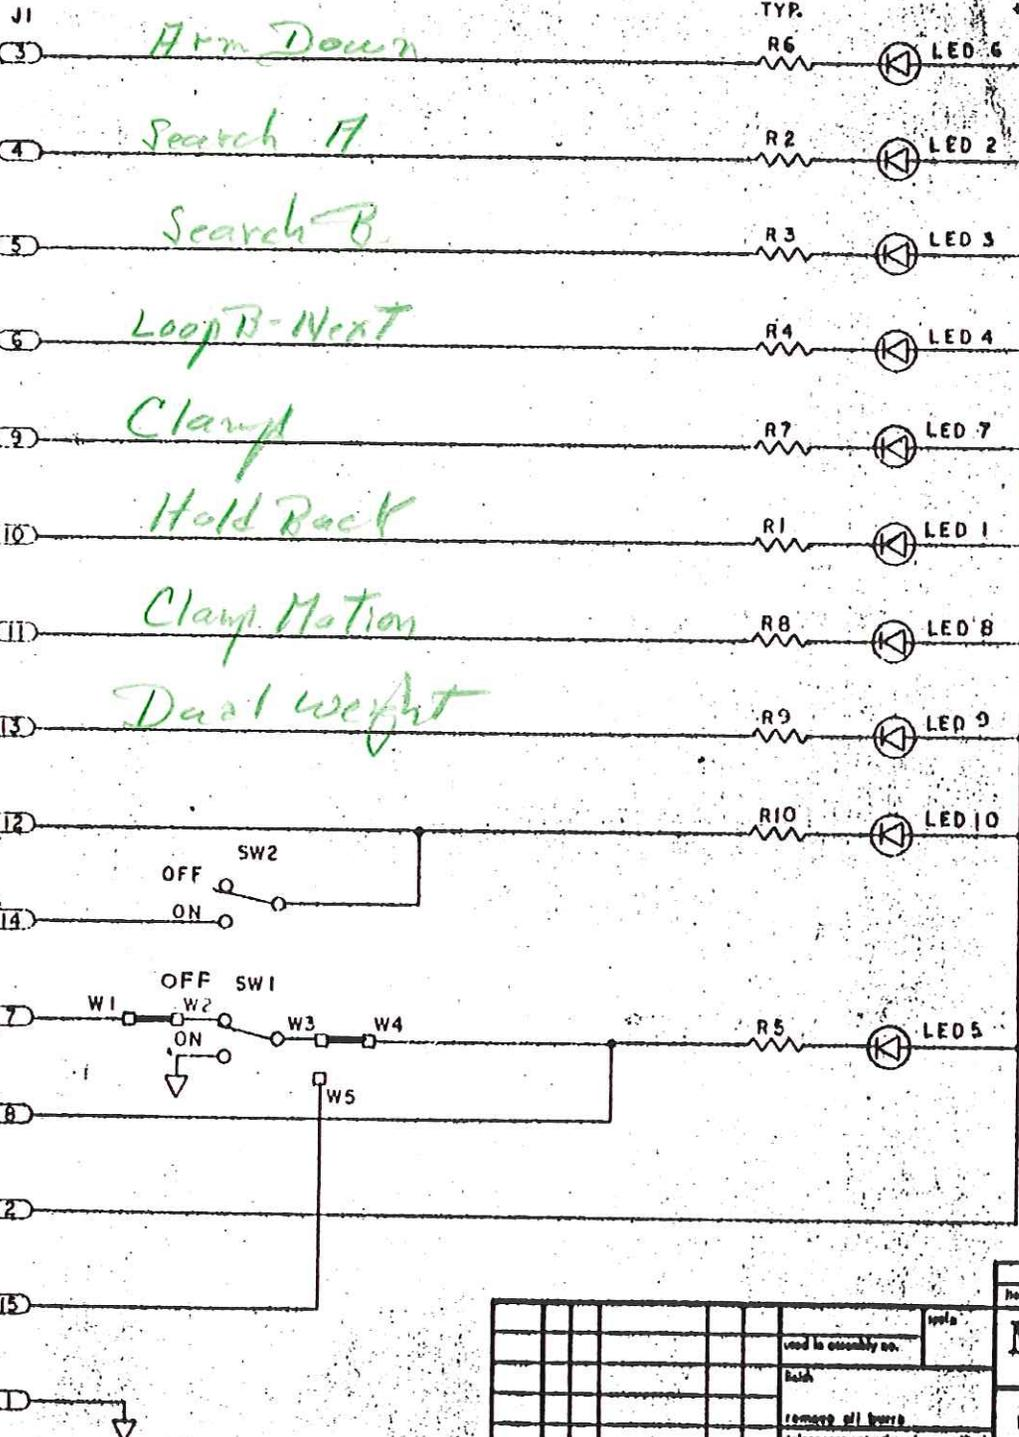 J1 TYP.
3 Arm Down R6 LED 6
4 Search A R2 LED 2
5 Search B R3 LED 3
6 Loop B-Next R4 LED 4
9 Clamp R7 LED 7
10 Hold Back R1 LED 1
11 Clamp Motion R8 LED 8
13 Dual Weight R9 LED 9
12 R10 LED 10
SW2
OFF
14 ON
OFF SW1
7 W1 W2 W3 W4 R5 LED 5
ON
W5
8
2
15
1
used in assembly no.
finish
remove all burrs